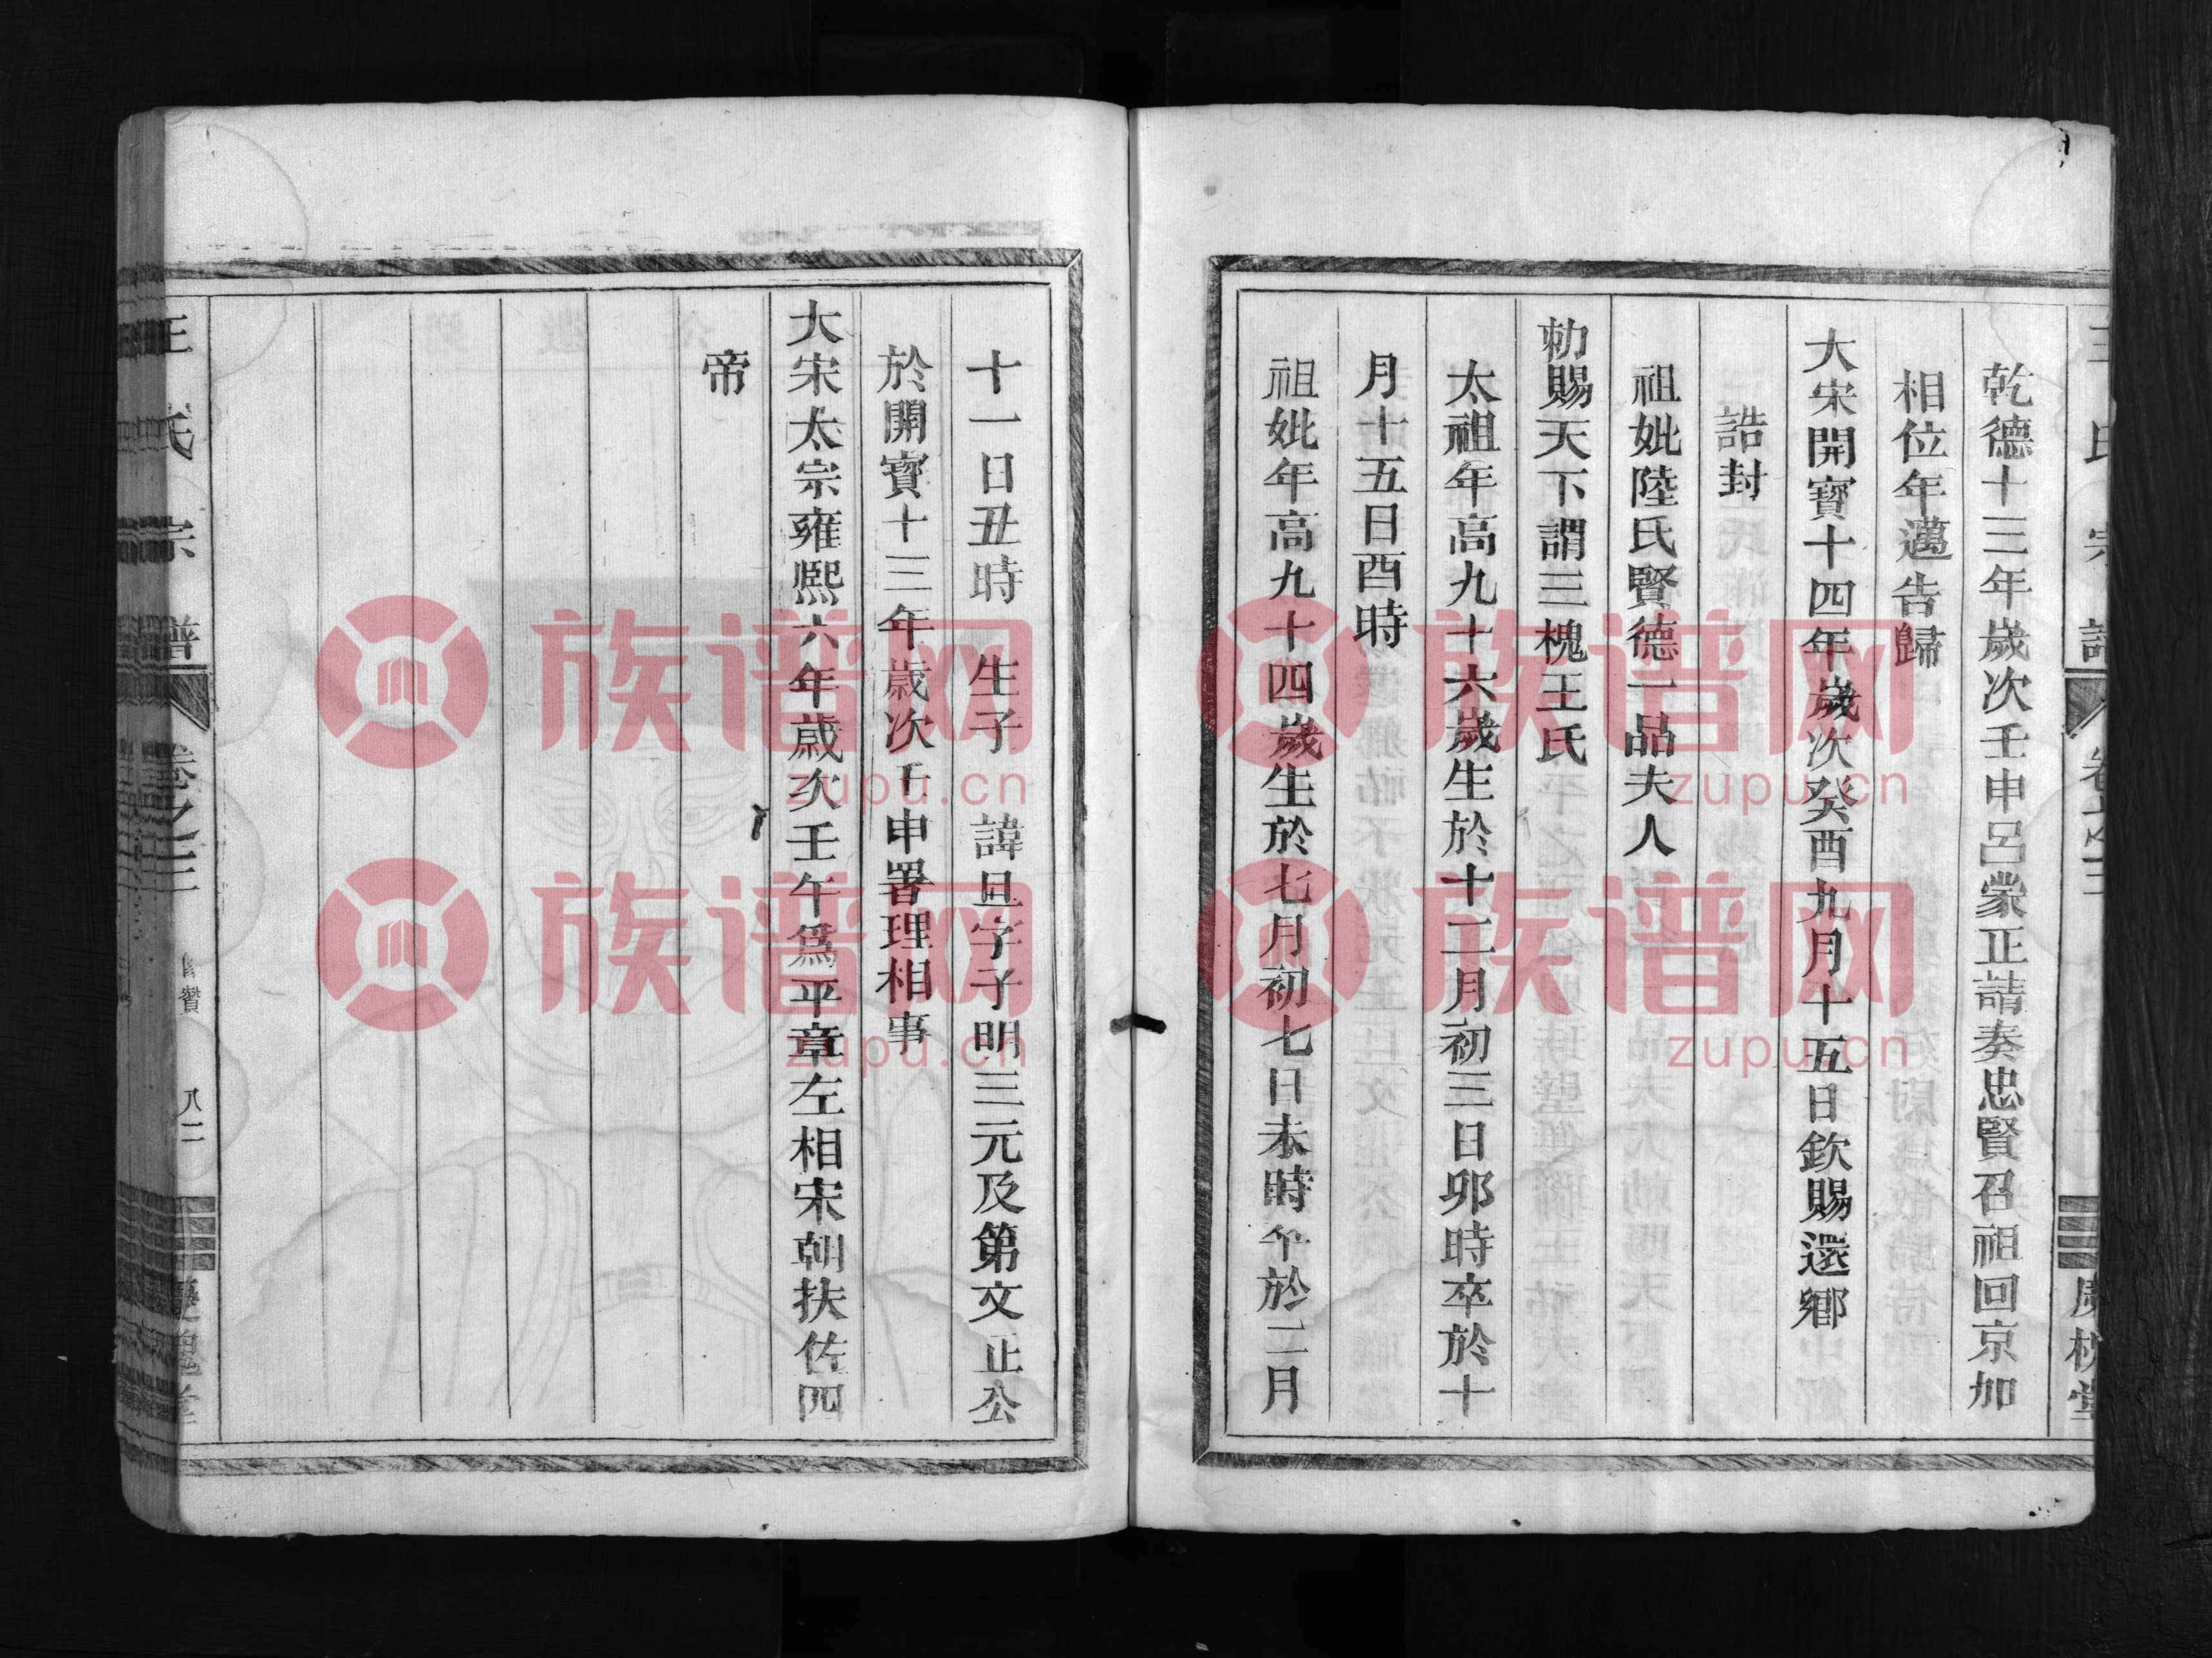 乾德十三年歲次壬申呂蒙正請奏忠賢召祖回京加
相位年邁告歸
大宋開寶十四年歲次癸酉九月十五日欽賜還鄉
誥封
祖妣陸氏賢德一品夫人
勅賜天下謂三槐王氏
太祖年高九十六歲生於十二月初三日卯時卒於十
月十五日酉時
祖妣年高九十四歲生於七月初七日未時卒於二月
十一日丑時 生子 諱旦字子明三元及第文正公
於開寶十三年歲次壬申署理相事
大宋太宗雍熙六年歲次壬午爲平章左相宋朝扶佐四
帝
王氏宗譜 卷之三 贊 八二 槐堂
族谱网
zupu.cn
族谱网
zupu.cn
族谱网
zupu.cn
族谱网
zupu.cn